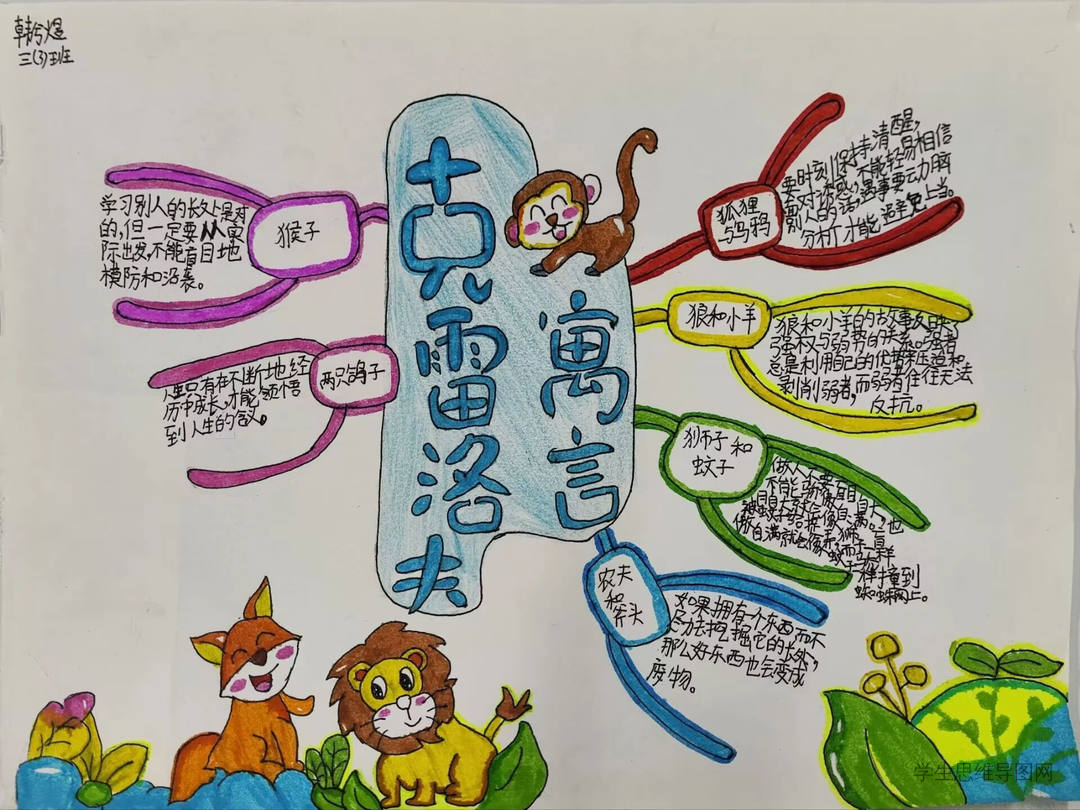 韩兮煜
三(3)班
克雷洛夫
寓言
猴子
学习别人的长处是对
的,但一定要从寓
际出发,不能盲目地
模防和沿袭。
两只鸽子
人生只有在不断地经
历中成长,才能领悟
到人生的含义。
狐狸
与乌鸦
要时刻保持清醒,
面对诱惑,不能轻易相信
别人的话,遇事要动脑
分析,才能 避免上当。
狼和小羊
狼和小羊的故事反映了
强权与弱势的关系。强者
总是利用自己的优势压迫和
剥削弱者,而弱者往往无法
反抗。
狮子和
蚊子
做人不要
不能骄傲自
样撞到
蜘蛛网上。
农夫
和
斧头
如果拥有一个东西而不
尽力去挖掘它的长处,
那么好东西也会变成
废物。
学生思维导图网